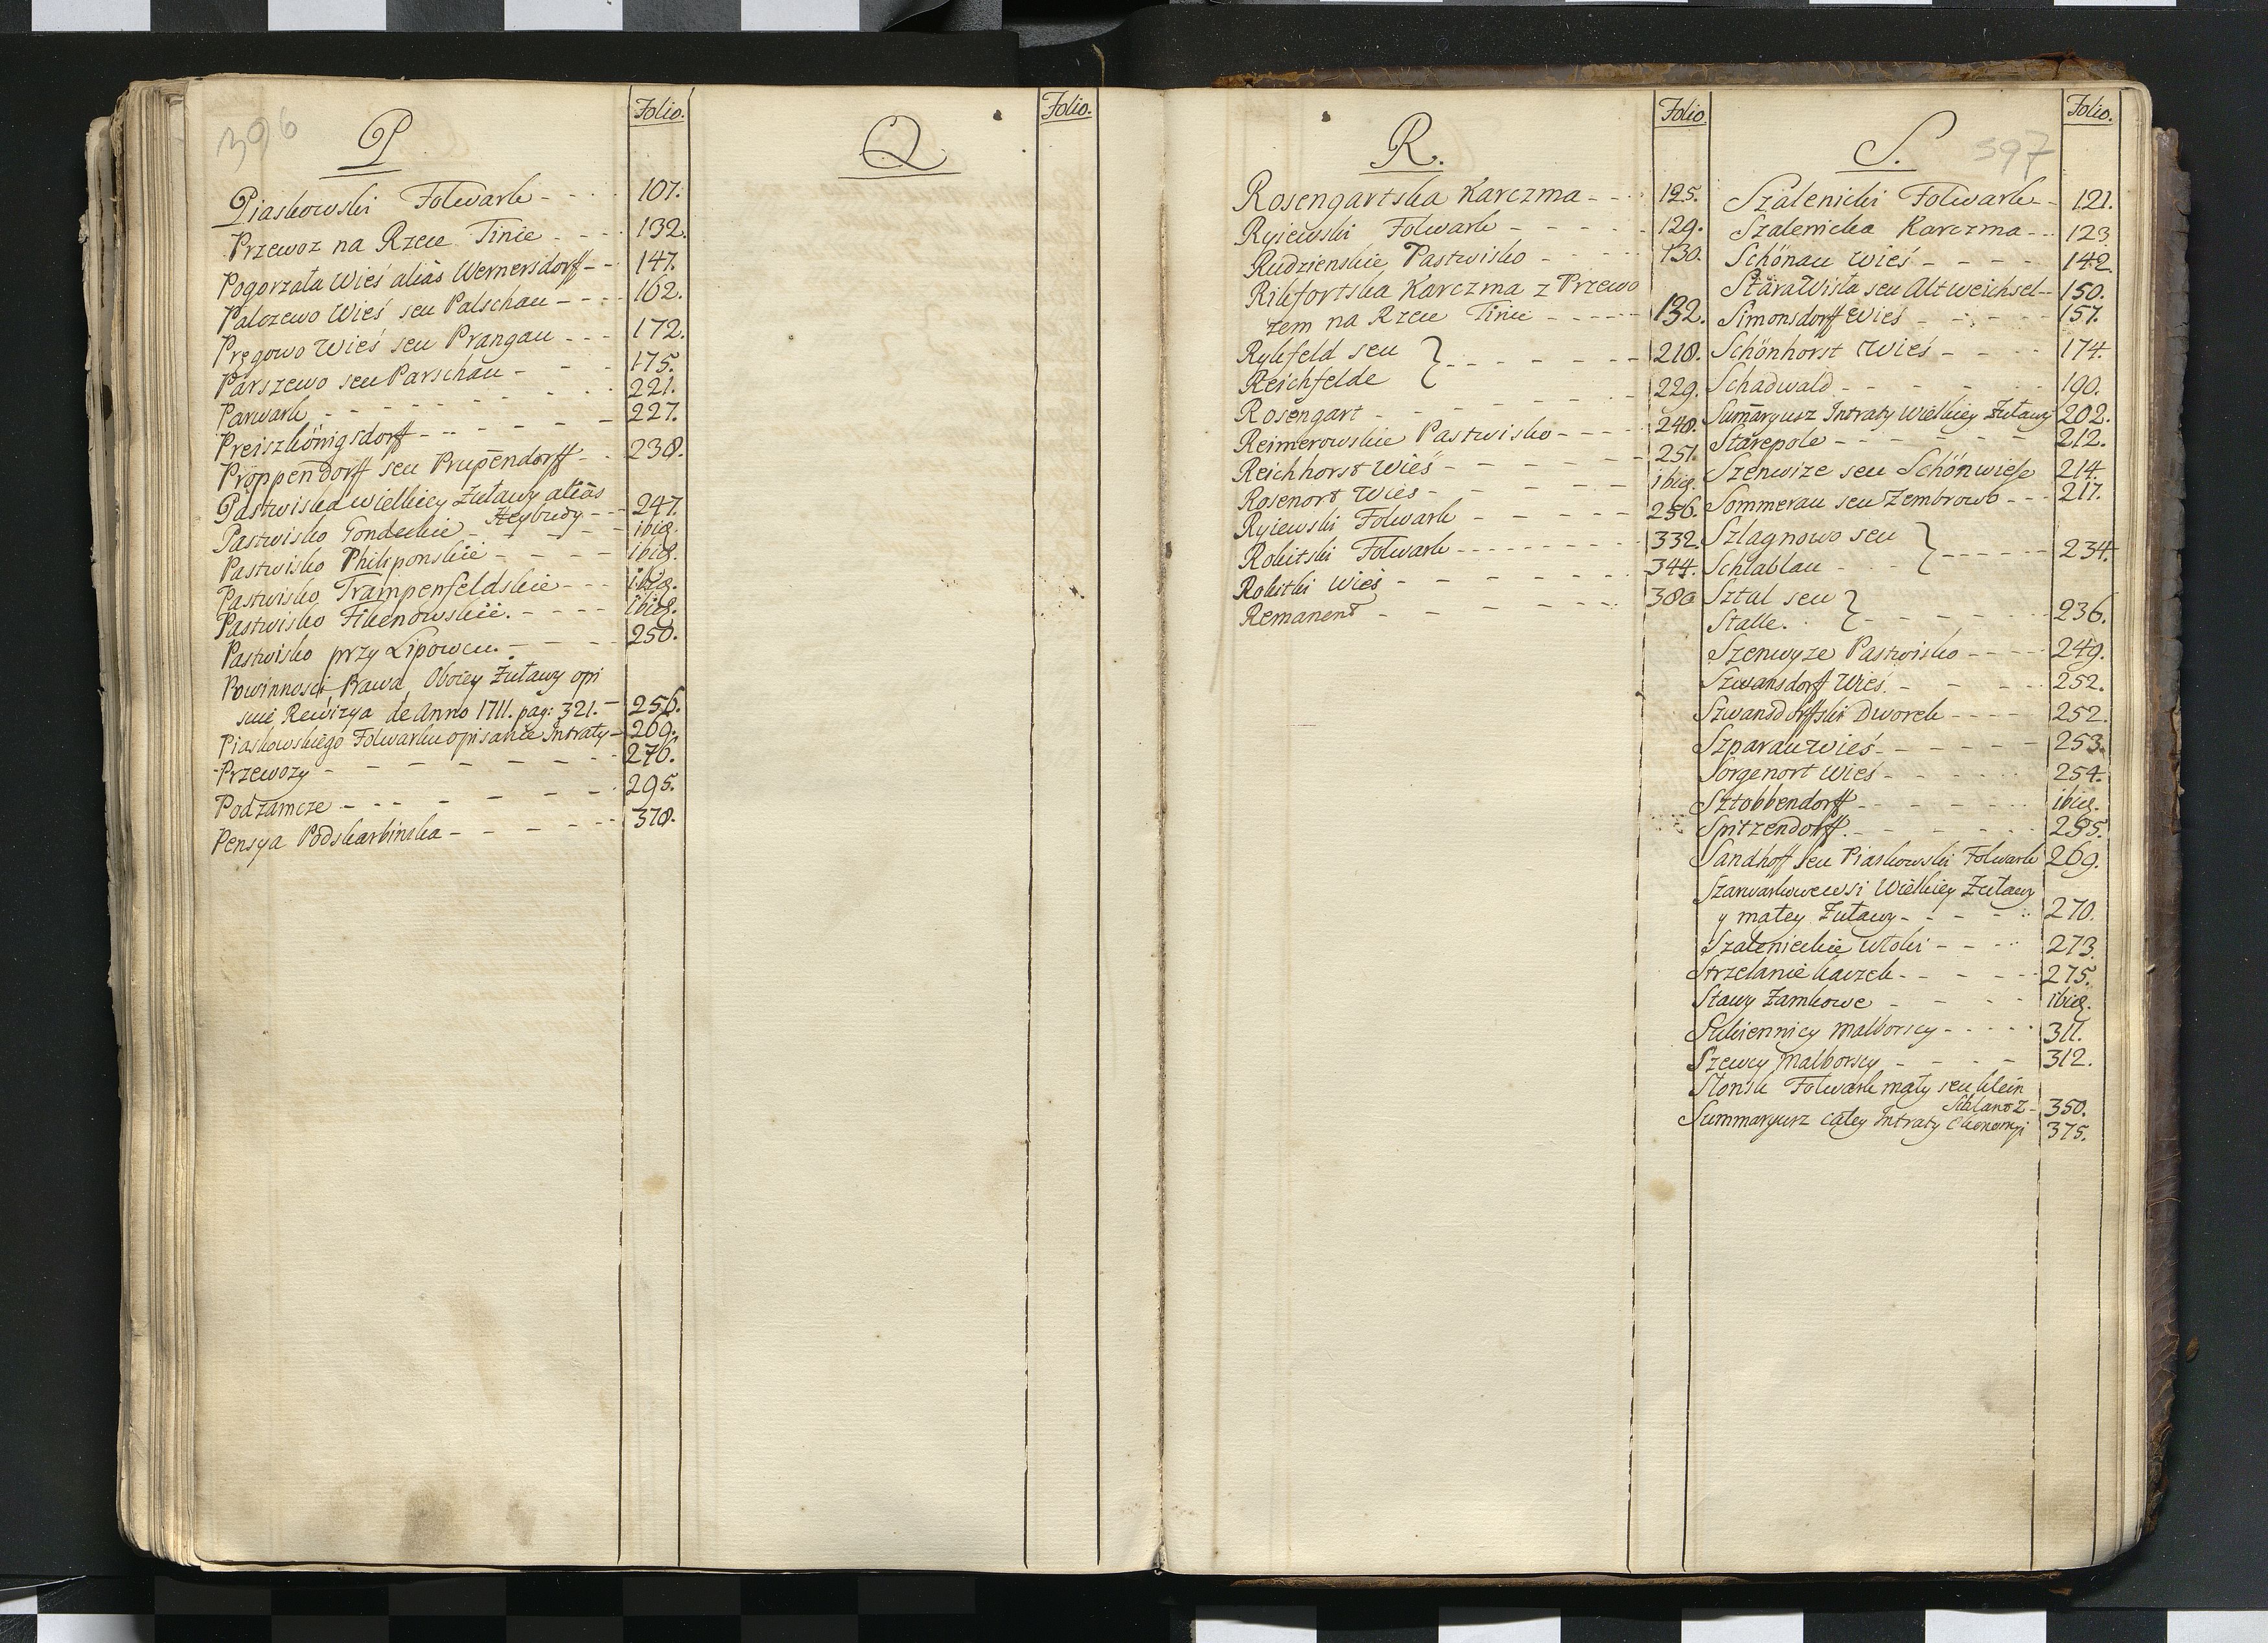 396
P.
Folio.
Piaskowski Folwark - - - 107.
Przewoz na Rzece Tinie - - - 132.
Pogorzała Wieś aliàs Wernersdorff - - 147.
Palczewo Wieś seu Palschau - - - 162.
Pręgowo Wieś seu Prangau - - - 172.
Parszewo seu Parschau - - - 175.
Parwark - - - - - - 221.
Preiszkönigsdorff - - - - - 227.
Proppendorff seu Prupendorff - - 238.
Pastwiska wielkiey Żuławy aliàs
Heybudy - - - 247.
Pastwisko Gondeckie - - - - ibid.
Pastwisko Philiponskie - - - - ibid.
Pastwisko Trampenfeldskie - - - ibid.
Pastwisko Fikenowskie. - - - - ibid.
Pastwisko przy Lipowcu. - - - 250.
Powinnosci, Prawa, Oboiey Żuławy opi
suie Rewizya de Anno 1711. pag: 321. - 256.
Piaskowskiego Folwarku opisanie Intraty - 269.
Przewozy - - - - - - - 276.
Podzamcze - - - - - - - 295.
Pensya Podskarbinska - - - - - 378.
Q
Folio.
R.
Folio.
Rosengartska Karczma - - - 125.
Ryiewski Folwark - - - - - 129.
Rudzienskie Pastwisko - - - - 130.
Rikfortska Karczma z Przewo
zem na Rzece Tinie - - - - - 132.
Rykfeld seu
Reichfelde } - - - - - - 218.
Rosengart - - - - - - - 229.
Reimerowskie Pastwisko - - - - 248.
Reichhorst Wieś - - - - - - 251.
Rosenort Wieś - - - - - - ibid.
Ryiewski Folwark - - - - - 256.
Rokitski Folwark - - - - - - - 332.
Rokitki Wieś - - - - - - 344.
Remanent - - - - - - 380
S.
597
Folio.
Szalenicki Folwark - - 121.
Szalenicka Karczma - - - 123.
Schönau Wieś - - - - 142.
Stara Wisła seu Altweichsel - - 150.
Simonsdorff Wieś - - - - 157.
Schönhorst Wieś - - - - 174.
Schadwald - - - - - - - 190.
Sumaryusz Intraty Wielkiey Żuławy 202.
Starepole - - - - - - - 212.
Szenwize seu Schönwiese 214.
Sommerau seu Zembrowo - - - 217.
Szlagnowo seu
Schlablau - - - } - - - - - 234.
Sztal seu
Stalle. } - - - - - 236.
Szenwyze Pastwisko - - - - 249.
Szwansdorff Wieś. - - - - 252.
Szwansdorffski Dworek - - - - 252.
Szparau Wieś - - - - - - 253.
Sorgenort Wieś - - - - - 254.
Sztobbendorff - - - - - - ibid.
Spitzendorff. - - - - - - 255.
Sandhoff seu Piaskowski Folwark 269.
Szarwarkowe wsi Wielkiey Żuławy
y małey Żuławy - - - - - 270.
Szalenieckie Włoki - - - - 273.
Strzelanie kaczek - - - - - 275.
Stawy Zamkowe - - - - ibid.
Sukiennicy Malborscy - - - - - 311.
Szewcy Malborscy - - - - - 312.
Słonsk Folwark mały seu klein
Schlantz - 350.
Summaryusz całey Intraty Ekonomyi 375.